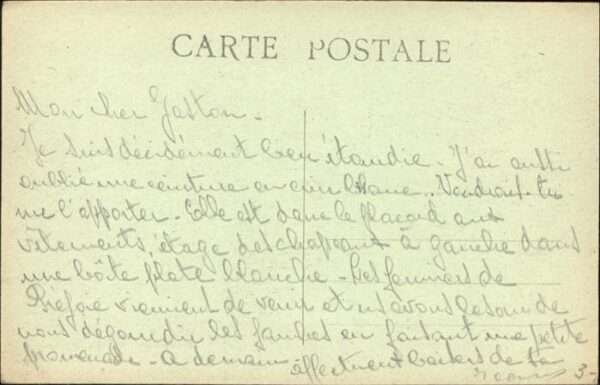 CARTE POSTALE
Mon cher Gaston.
Je suis décidément bien étourdie. J'ai aussi
oublié une ceinture en cuir blanc.. Voudrais-tu
me l'apporter. Elle est dans le placard aux
vêtements, étage des chapeaux à gauche dans
une boîte plate blanche. Les fermiers de
viennent de venir et ns avons besoin de
nous dégourdir les jambes en faisant une petite
promenade. A demain affectueux baisers de ta
3-